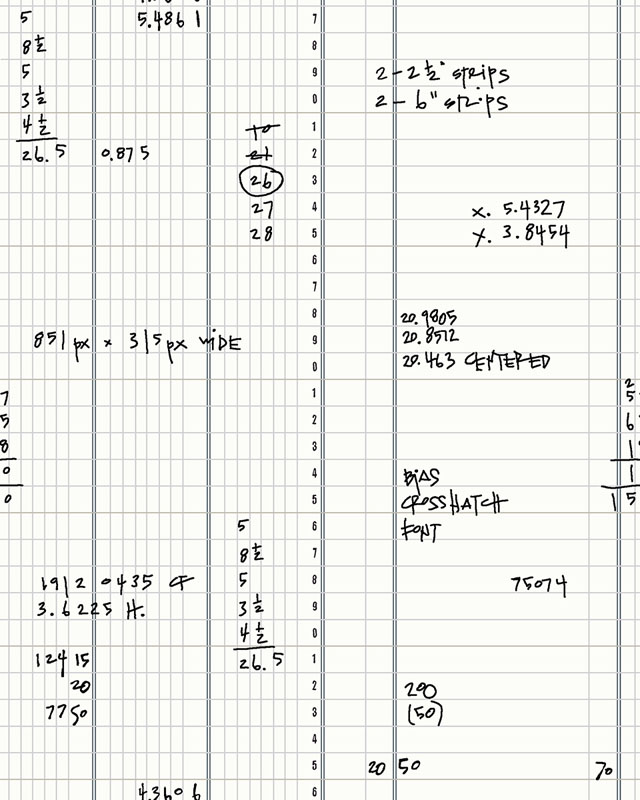 5.4861
7
5
8
8 1/2
9
2 - 2 1/2" strips
5
0
2 - 6" strips
3 1/2
1
4 1/2
10
2
26.5 0.875
21
3
26
4
27
x. 5.4327
5
28
y. 3.8454
6
7
8
20.9805
9
20.8512
851 px x 315 px WIDE
0
20.463 CENTERED
1
7
2
5
2
5
6
3
8
1
4
0
BIAS
1
5
0
CROSSHATCH
15
6
5
FONT
7
8 1/2
8
5
75074
3.6225 H.
9
3 1/2
0
4 1/2
12415
1
26.5
20
2
200
7750
3
(50)
4
5
20 50
70
6
4.3606